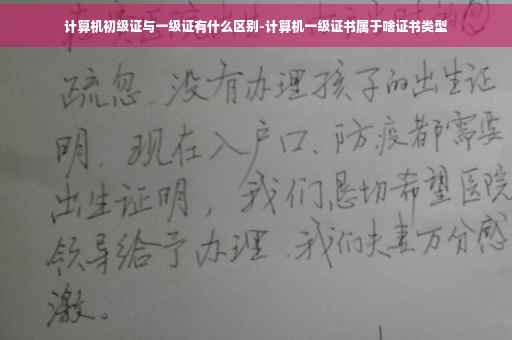 计算机初级证与一级证有什么区别-计算机一级证书属于啥证书类型
疏忽、没有办理孩子的出生证
明、现在入户口、防疫都需要
出生证明，我们恳切希望医院
领导给予办理、我们夫妻万分感
激。